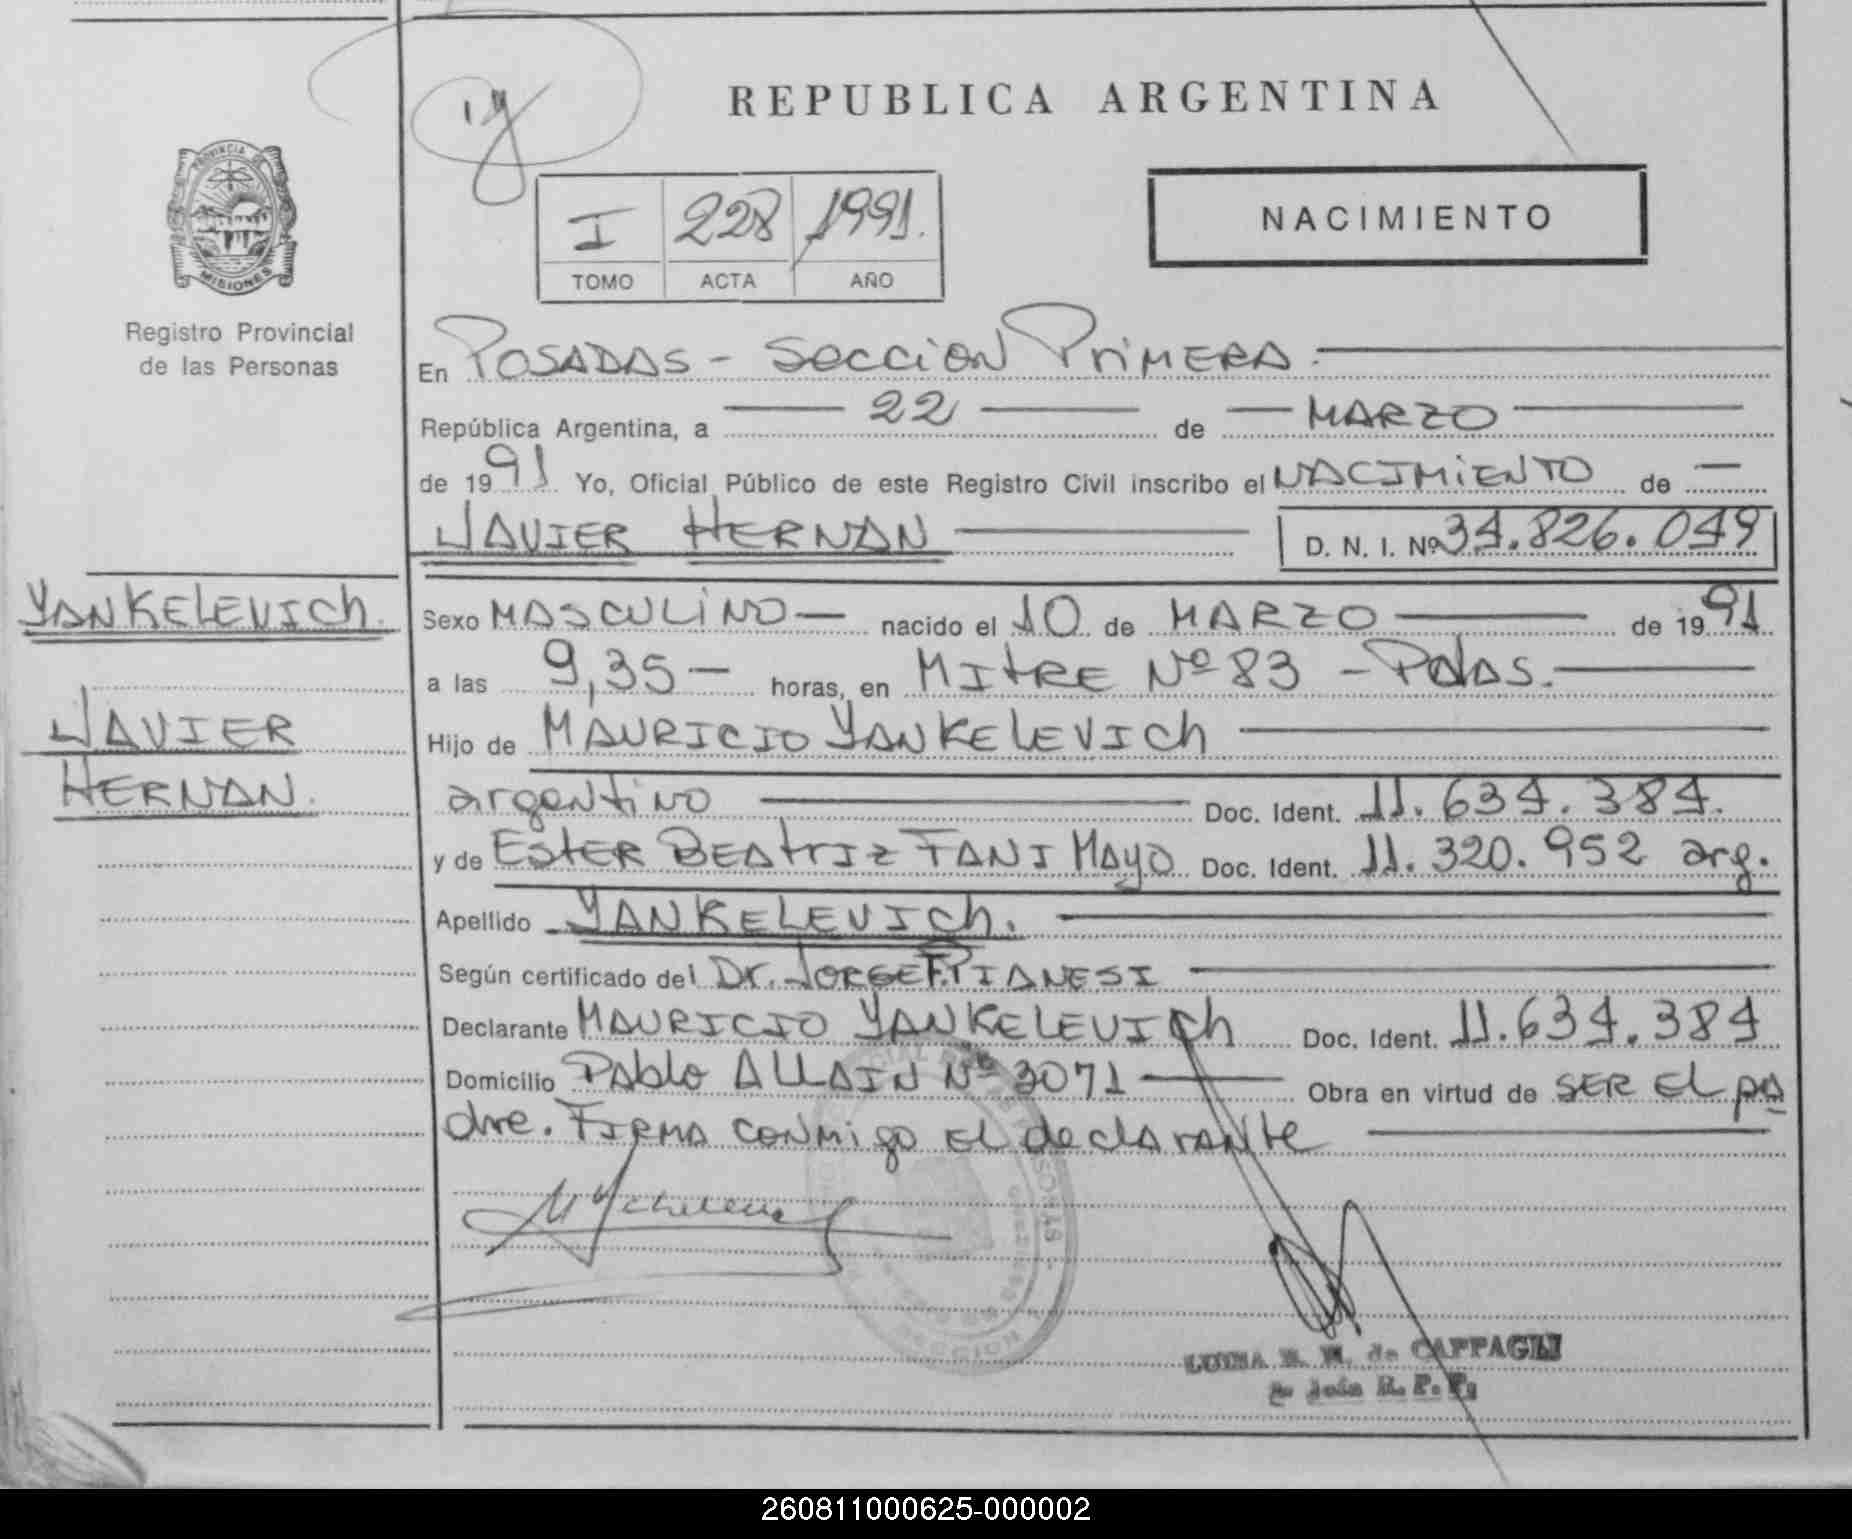 REPUBLICA ARGENTINA
PROVINCIA DE
MISIONES
Registro Provincial
de las Personas
I 228 1991.
TOMO ACTA AÑO
NACIMIENTO
En POSADAS - Seccion Primera.
República Argentina, a 22 de MARZO
de 1991 Yo, Oficial Público de este Registro Civil inscribo el NACIMIENTO de
JAVIER HERNAN D. N. I. Nº 34.826.049
YANKELEVICh.
JAVIER
HERNAN.
Sexo MASCULINO nacido el 10 de MARZO de 1991
a las 9,35 horas, en MITRE Nº 83 - Pdas.
Hijo de MAURICIO YANKELEVICh
argentino Doc. Ident. 11.634.384.
y de ESTER BEAtriz FANI MAyo Doc. Ident. 11.320.952 arg.
Apellido YANKELEVICh.
Según certificado del Dr. JORGE F. PIANESI
Declarante MAURICIO YANKELEVICh Doc. Ident. 11.634.384
Domicilio PAblo ALLAIN Nº 3071 Obra en virtud de SER El pa
dre. FIRMA CONMigo El declarante
de CAPPAGLI
R. P. P.
260811000625-000002